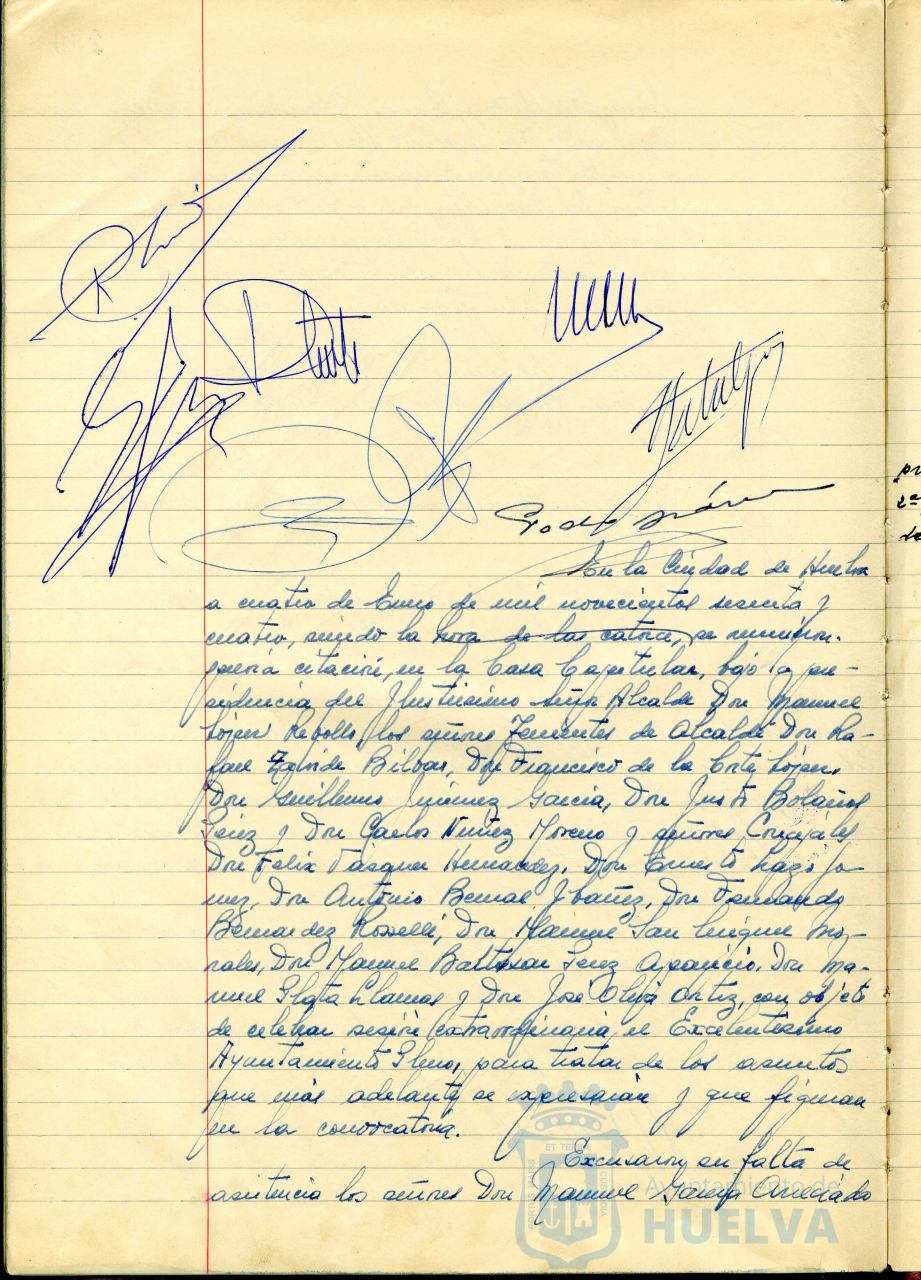 En la Ciudad de Huelva
a cuatro de Enero de mil novecientos sesenta y
cuatro, siendo la hora de las catorce, se reunieron
previa citación, en la Casa Capitular, bajo la pre-
sidencia del Ilustrísimo señor Alcalde Don Manuel
López Rebollo, los señores Tenientes de Alcalde Don Ra-
fael Bilbao, Don Francisco de la Corte López,
Don Guillermo Jiménez García, Don Justo Bolaños
Pérez y Don Carlos Núñez Moreno y señores Concejales
Don Félix Vázquez Hernández, Don Ernesto Lazo Jo-
Don Antonio Bernal Ibáñez, Don Fernando
Bernardez Rosselli, Don Manuel San Mo-
rales, Don Manuel Baltasar Pérez Aparicio, Don Ma-
nuel Plata Llamas y Don José Oliva Ortiz, con objeto
de celebrar sesión extraordinaria el Excelentísimo
Ayuntamiento Pleno, para tratar de los asuntos
que más adelante se expresarán y que figuran
en la convocatoria.
Excusaron su falta de
asistencia los señores Don Manuel
Ayuntamiento de
HUELVA